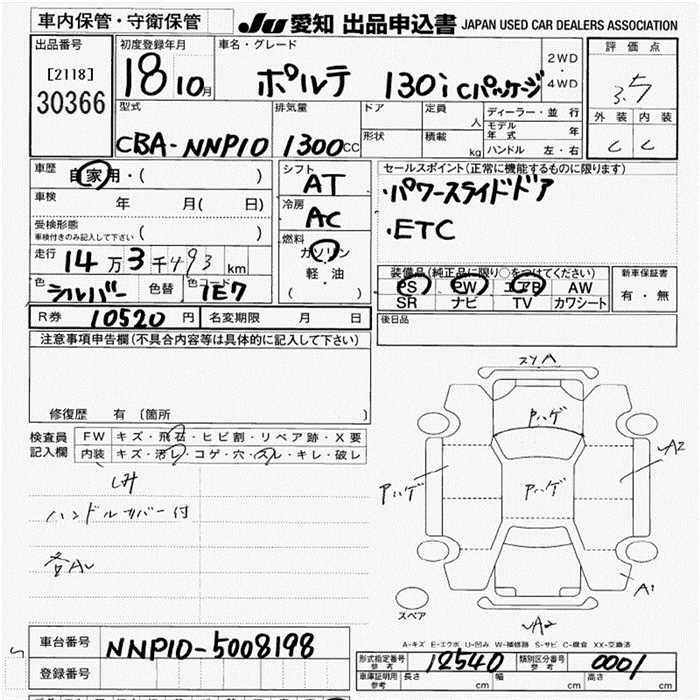 車内保管・守衛保管
JU 愛知 出品申込書 JAPAN USED CAR DEALERS ASSOCIATION
出品番号
[2118]
30366
初度登録年月
18 10月
車名・グレード
ポルテ 130i Cパッケージ
2WD
・
4WD
評価点
3.5
外装 内装
C C
型式
CBA-NNP10
排気量
1300CC
ドア
定員
人
形状
積載
kg
ディーラー・並行
モデル年式 年
ハンドル 左・右
車歴
自家用・( )
車検
年 月( 日)
受検形態
車検付きのみ記入して下さい ( )
走行
14万3千493km
色
シルバー
色替
色コード
1E7
シフト
AT
冷房
AC
燃料
ガソリン
軽・油
( )
セールスポイント(正常に機能するものに限ります)
・パワースライドドア
・ETC
装備品(純正品に限り○をつけてください)
PS PW エアB AW
SR ナビ TV カワシート
新車保証書
有・無
R券 10520円 名変期限 月 日
後日品
注意事項申告欄(不具合内容等は具体的に記入して下さい)
修復歴 有 〔箇所 〕
検査員
記入欄
FW キズ・飛石・ヒビ割・リペア跡・X要
内装 キズ・汚レ・コゲ・穴・スレ・キレ・破レ
シミ
ハンドルカバー付
各AU
Pハゲ
Pハゲ
Pハゲ
A2
A1
A2
スペア
A-キズ E-エクボ U-凹み W-補修跡 S-サビ C-腐食 XX-交換済
車台番号
NNP10-5008198
登録番号
形式指定番号
参考
12540
類別区分番号
参考
0001
車庫証明用
参考
長さ cm 幅 cm 高さ cm